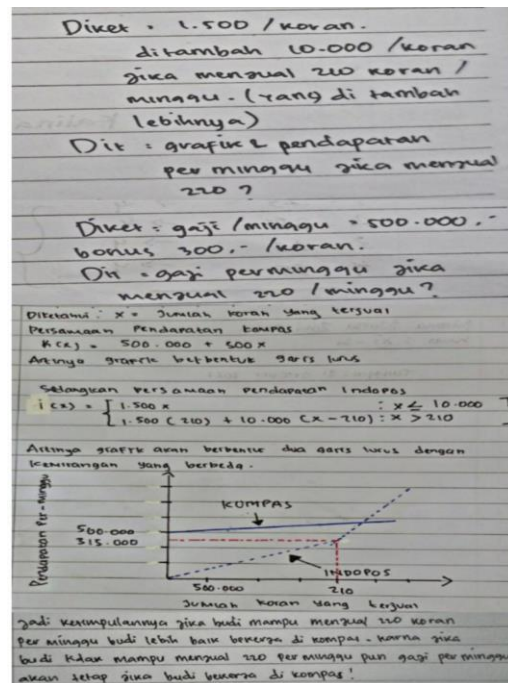 Diket : 1.500 / koran.
ditambah 10.000 / koran
jika menjual 210 koran /
minggu. (yang di tambah
lebihnya)
Dit : grafik & pendapatan
per minggu jika menjual
220 ?
Diket : gaji / minggu = 500.000,-
bonus 300,- / koran.
Dit : gaji perminggu jika
menjual 220 / minggu ?
Diketahui : x = Jumlah koran yang terjual
Persamaan Pendapatan Kompas
K(x) = 500.000 + 500x
Artinya grafik berbentuk garis lurus
Sedangkan persamaan pendapatan Indopos
i(x) = 1.500 x : x ≤ 10.000
1.500 (210) + 10.000 (x - 210) : x > 210
Artinya grafik akan berbentuk dua garis lurus dengan
kemiringan yang berbeda.
Pendapatan Per-minggu
KOMPAS
500.000
315.000
INDOPOS
500.000
210
Jumlah koran yang terjual
Jadi kesimpulannya jika budi mampu menjual 220 koran
per minggu budi lebih baik bekerja di kompas. karna jika
budi tidak mampu menjual 220 per minggu pun gaji perminggu
akan tetap jika budi bekerja di kompas !